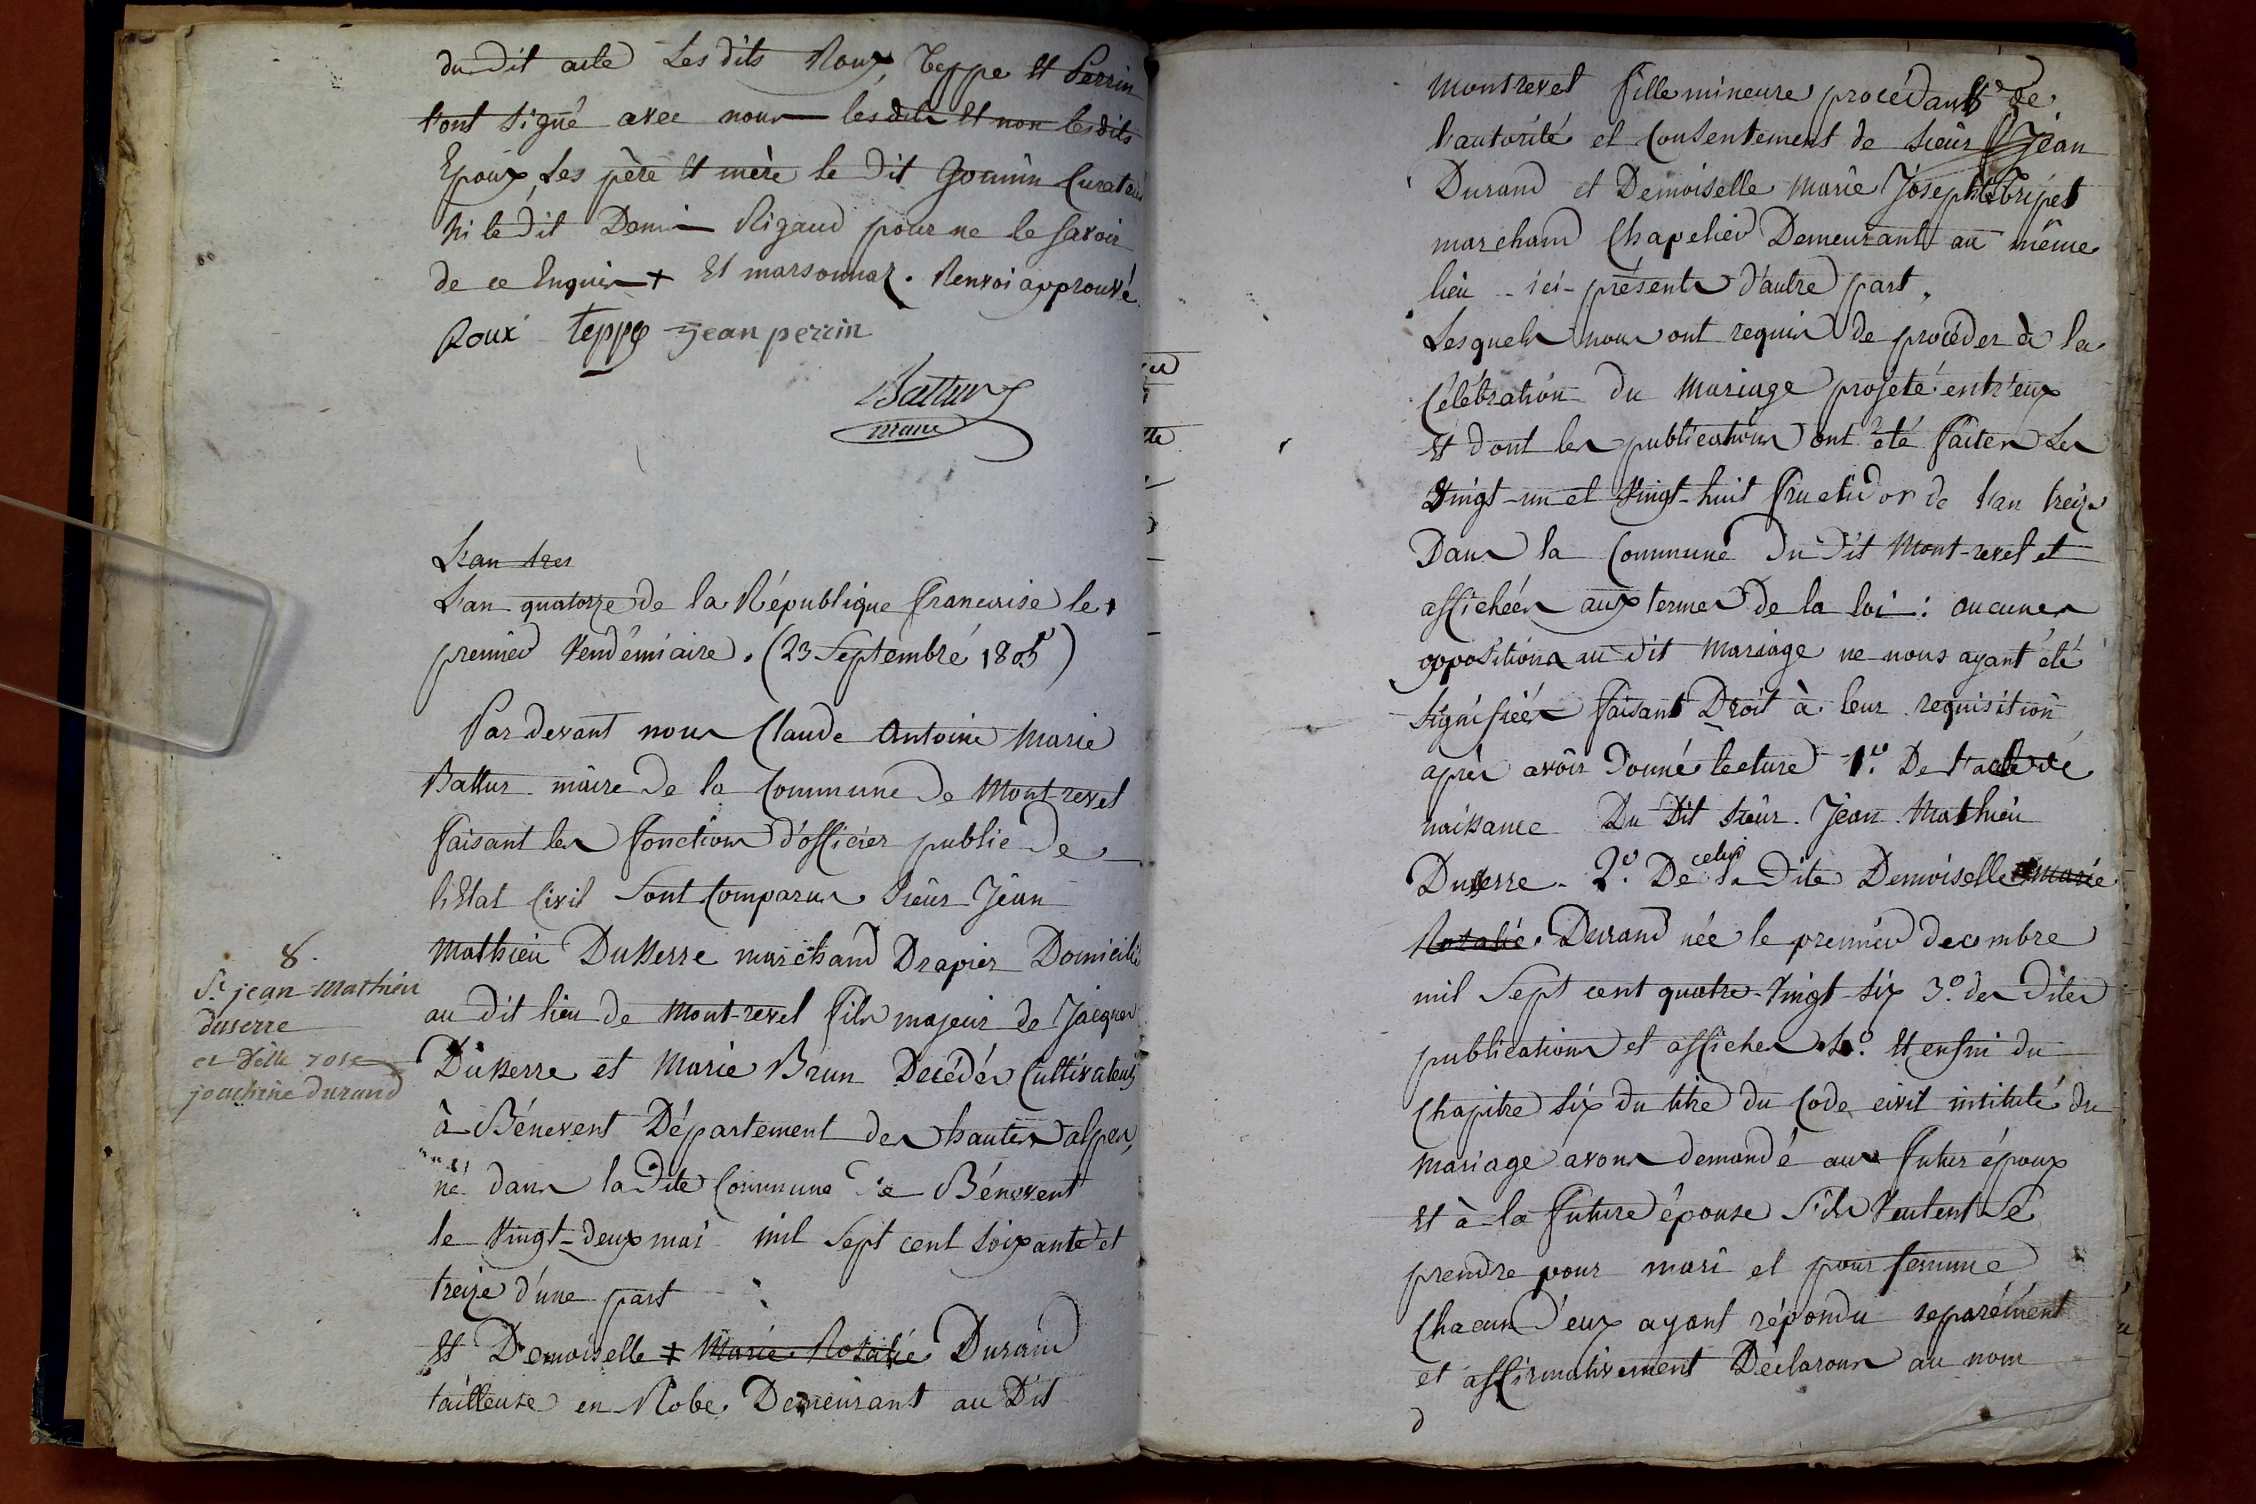 du dit acte Les dits Roux, Teppe et Perrin
l'ont signé avec nous les dits et non les dits
Epoux, Les père et mère le dit Gonnin Curateur
ni le dit Denis Rigaud pour ne le savoir
de ce Enquis + Et marsonnaz. Renvoi approuvé
Roux teppe jean perrin
Battur
maire
L'an trei
L'an quatorze de la République francaise le
premier Vendémiaire. (23 Septembre 1805)
Par devant nous Claude Antoine Marie
Battur maire de la Commune de Mont-revel
faisant les fonctions d'officier public de
l'Etat Civil Sont Comparus Sieur Jean
Mathieu Dusserre marchand Drapier Domicilié
au dit lieu de Mont-revel fils majeur de Jacques
Dusserre et Marie Brun Décédés Cultivateurs
à Bénevent Département des hautes alpes,
né dans la dite Commune de Bénevent
le Vingt-deux mai mil Sept cent soixante et
treize d'une part
Et Demoiselle + Marie Rosalie Durand
tailleuse en Robe. Demeurant au Dit
8.
Sr. jean Mathieu
duserre
et Delle rose
joachine durand
Montrevel fille mineure procédant de
l'autorité et Consentement de sieur Jean
Durand et Demoiselle Marie Josephte tripet
marchand Chapelier Demeurant au même
lieu ici présents d'autre part.
Lesquels nous ont requis de procéder à la
Célébration du Mariage projeté entr'eux
Et dont les publications ont été faites Les
Vingt-un et Vingt-huit fructidor de l'an treize
Dans la Commune du dit Mont-revel et
affichées aux termes de la loi : aucunes
oppositions au dit Mariage ne nous ayant été
signifiées faisant Droit à leur requisition
après avoir donné lecture 1o. De l'acte de
naissance Du Dit sieur Jean Mathieu
Dusserre. 2o. De celui la Dite Demoiselle marie
Rosalie. Durand née le premier decembre
mil Sept cent quatre-Vingt-Six 3o. des dites
publications et affiches 4o. Et enfin du
Chapitre six du titre du Code civil intitulé du
mariage avons demandé aux futur époux
Et à la future épouse S'ils Veulent Se
prendre pour mari et pour femme
Chacun d'eux ayant répondu separément
et affirmativement Déclarons au nom
d